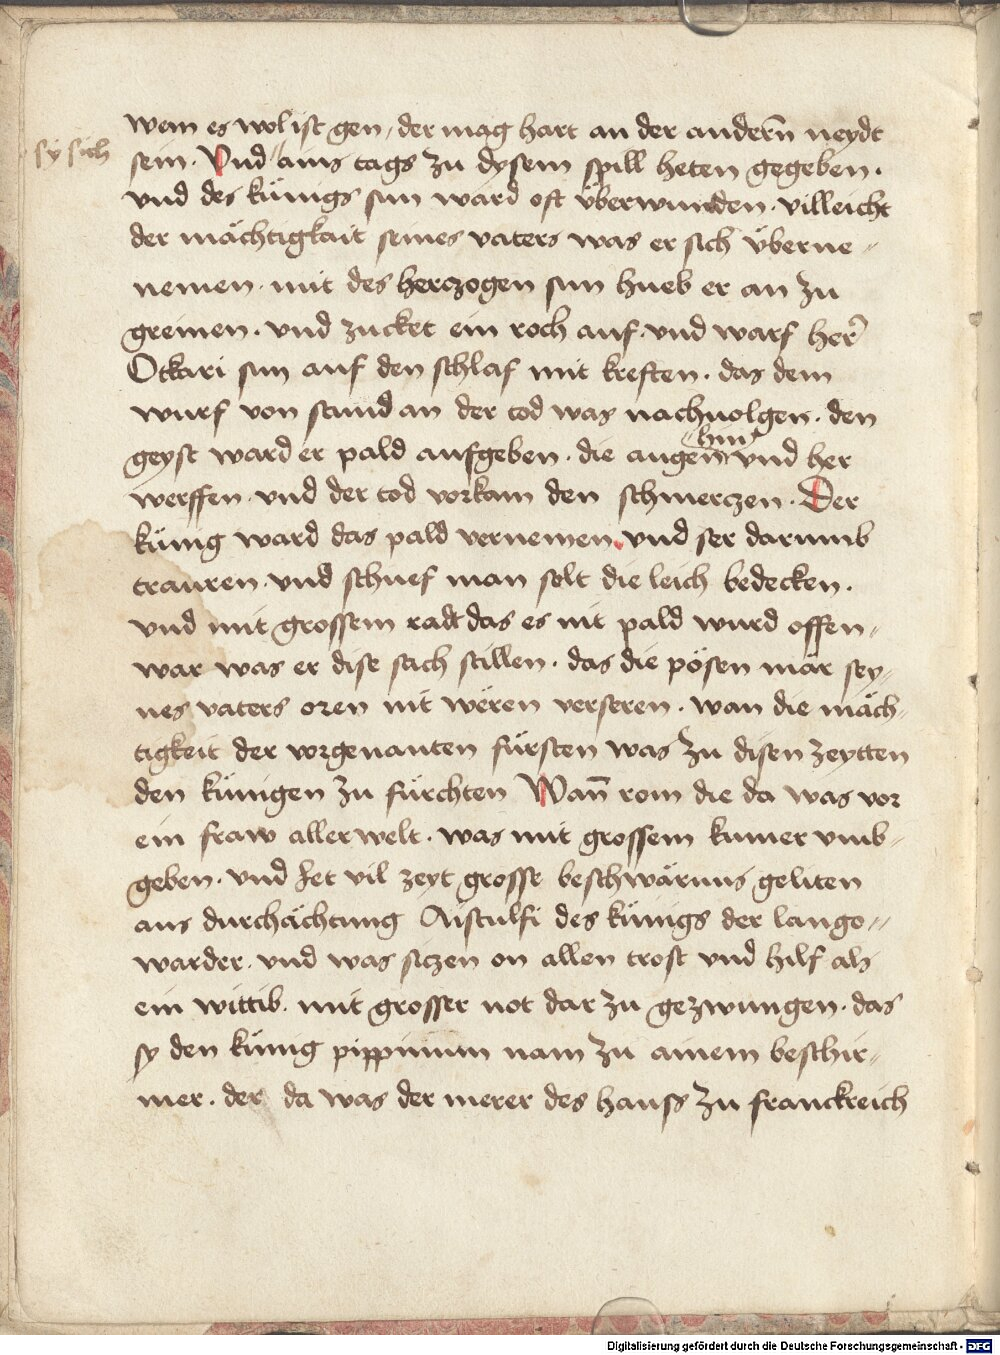 wem es wol ist gen, der mag hart an der andern̄ neydt
sy sich
sein. Vnd ains tags zu dysem spill heten gegeben.
vnd des künigs sun ward oft überwunden. villeicht
der mächtigkait seines vaters was er sich überne-
nemen. mit des herczogen sun hueb er an zu
greinen. vnd zucket ein roch auf. vnd warf her̄
Otkari sun auf den schlaf mit kreften. das dem
wurf von stund an der tod was nachuolgen. den
hin
geyst ward er pald aufgeben. die augen vnd her
werffen. vnd der tod vorkam den schmerczen. Der
künig ward das pald vernemen. vnd ser darumb
trauren. vnd schuef man solt die leich bedecken.
vnd mit grossem radt das es nit pald wurd offen-
war was er dise sach stillen. das die pösen mär sey-
nes vaters oren nit wëren verseren. wan die mäch-
tigkeit der vorgenanten fürsten was zu disen zeytten
den künigen zu fürchten Wan̄ rom die da was vor
ein fraw aller welt. was mit grossem kumer vmb-
geben. vnd het vil zeyt grosse beschwärnus geliten
aus durchächtung Aistulfi des künigs der lango-
warder. vnd was siczen on allen trost vnd hilf als
ein wittib. mit grosser not dar zu gezwungen. das
sy den künig pippinum nam zu ainem beschir-
mer. der da was der merer des hauss zu franckreich
Digitalisierung gefördert durch die Deutsche Forschungsgemeinschaft - DFG